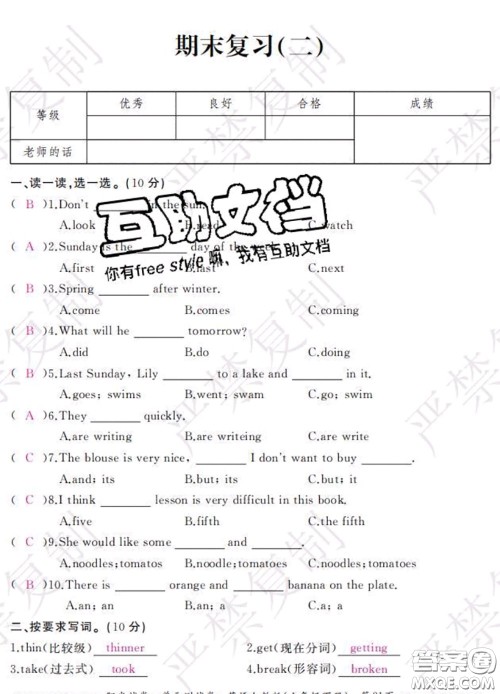 期末复习(二)
等级 优秀 良好 合格 成绩
老师的话
一、读一读,选一选。(10分)
( B )1.Don't in the sun.
A.look B.read C.watch
( A )2.Sunday is the day of the
A.first B.last C.next
( B )3.Spring ______ after winter.
A.come B.comes C.coming
( B )4.What will he ______ tomorrow?
A.did B.do C.doing
( B )5.Last Sunday, Lily ______ to a lake and ______ in it.
A.goes; swims B.went; swam C.go; swims
( A )6.They ______ quickly.
A.are writing B.are writeing C.are write
( C )7.The blouse is very nice, ______ I don't want to buy ______.
A.and; its B.but; its C.but; it
( B )8.I think ______ lesson is very difficult in this book.
A.five B.fifth C.the fifth
( C )9.She would like some ______ and ______.
A.noodles;tomatos B.noodle;tomatoes C.noodles;tomatoes
( B )10.There is ______ orange and ______ banana on the plate.
A.an; an B.an; a C.a; an
二、按要求写词。(10分)
1.thin(比较级) thinner 2.get(现在分词) getting
3.take(过去式) took 4.break(形容词) broken
互助文档
你有free style嘛、我有互助文档
严禁复制
严禁复制
严禁复制
严禁复制
答案圈
MXQE.COM